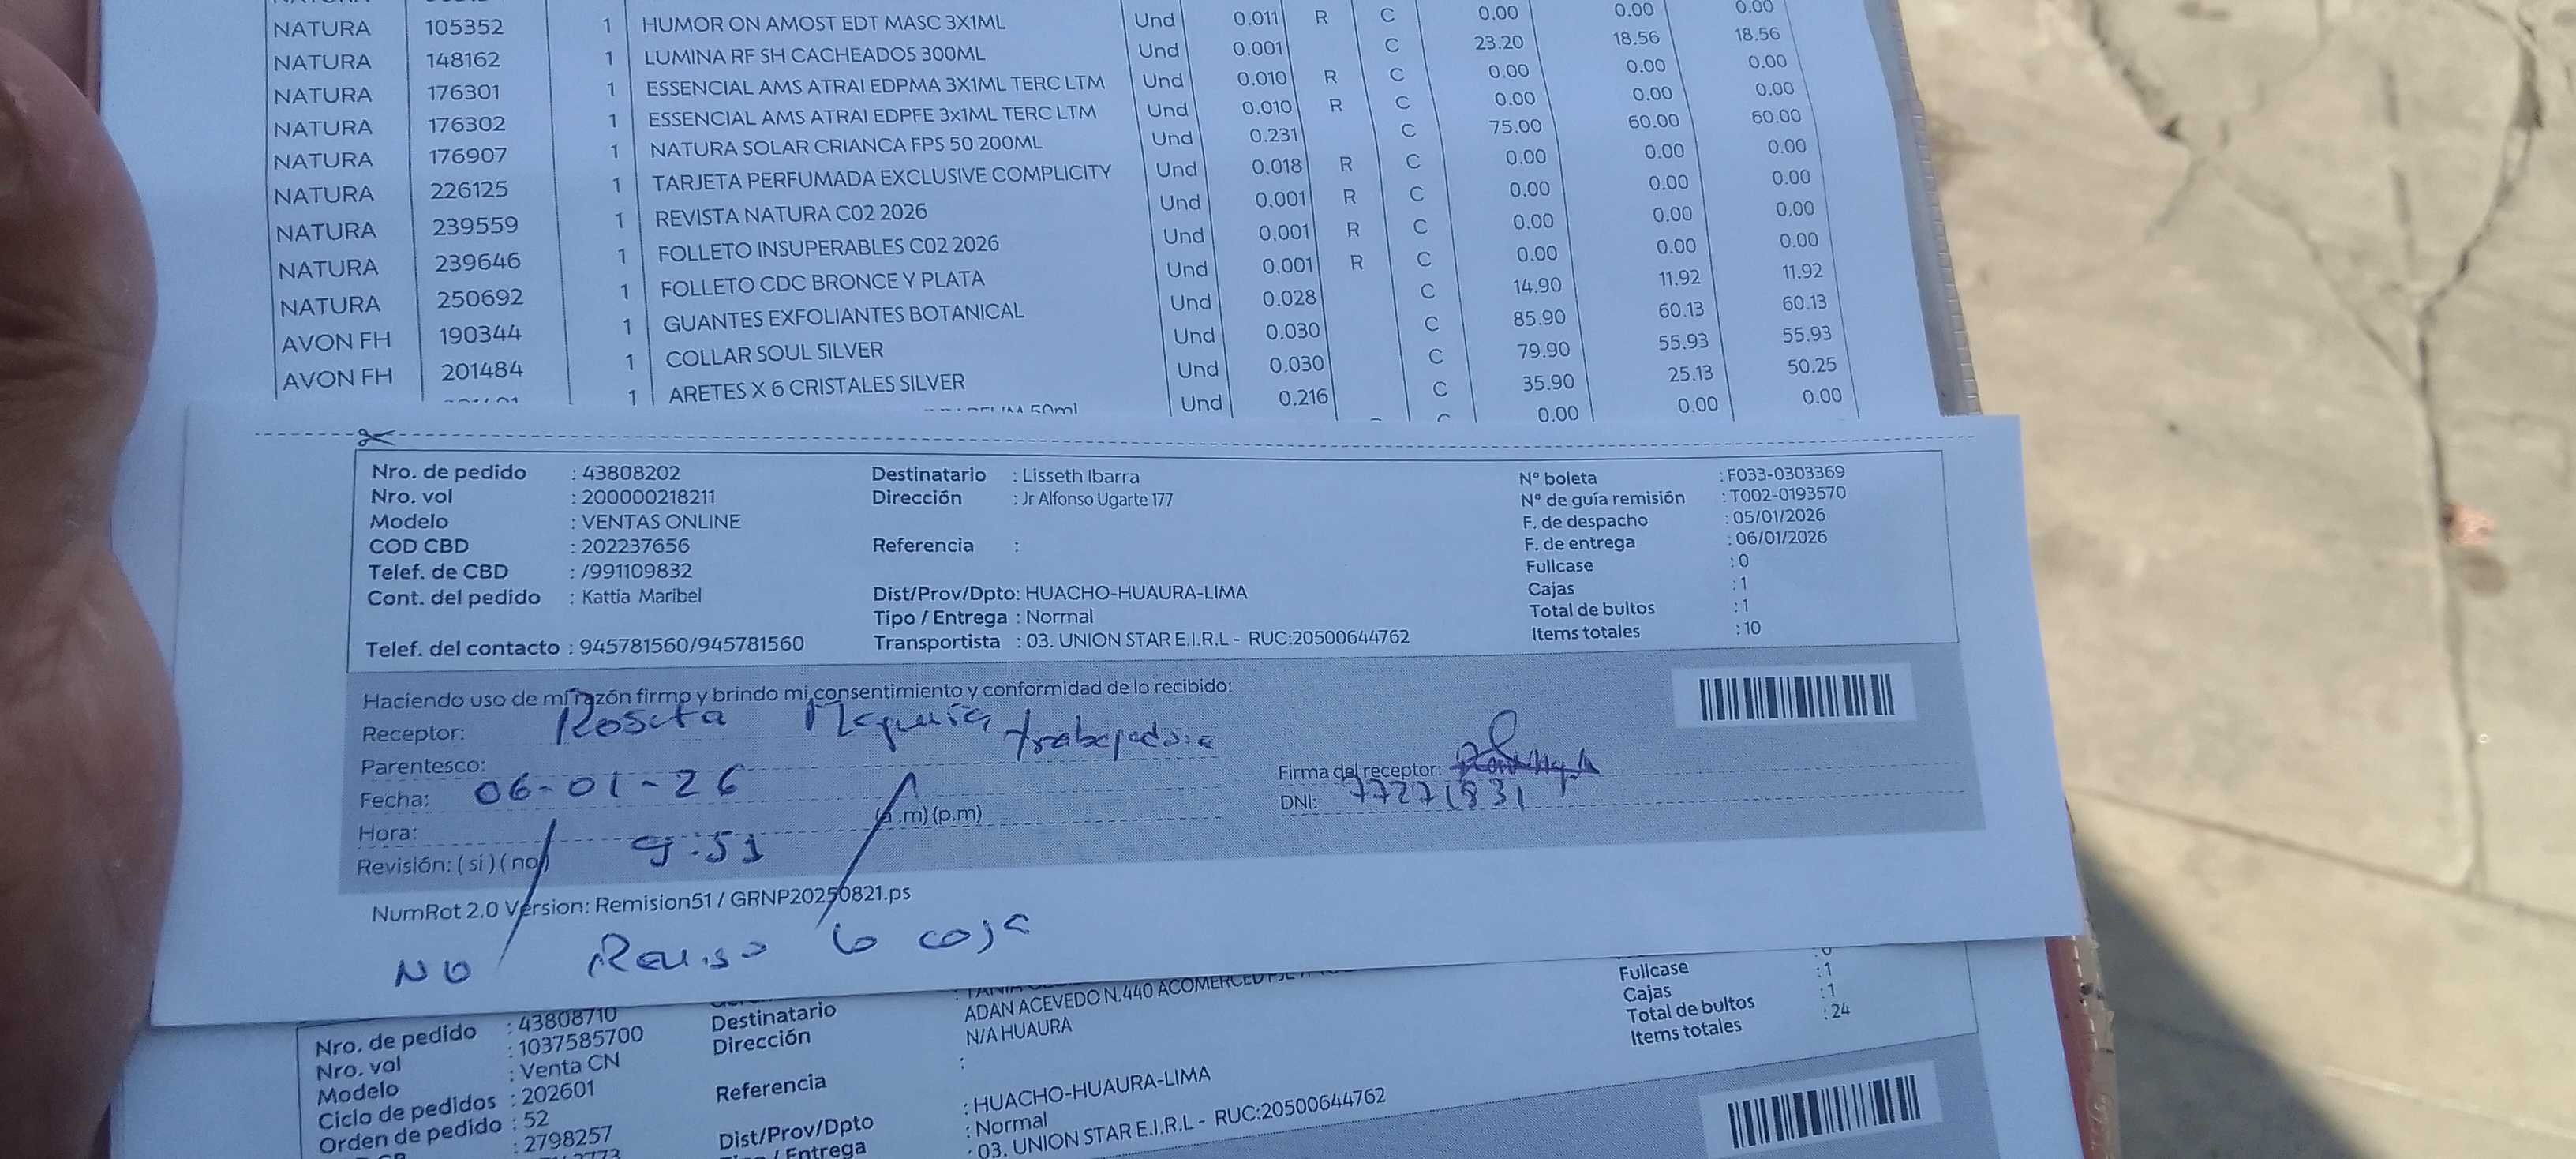 NATURA 105352 1 HUMOR ON AMOST EDT MASC 3X1ML Und 0.011 R C 0.00 0.00 0.00
NATURA 148162 1 LUMINA RF SH CACHEADOS 300ML Und 0.001 C 23.20 18.56 18.56
NATURA 176301 1 ESSENCIAL AMS ATRAI EDPMA 3X1ML TERC LTM Und 0.010 R C 0.00 0.00 0.00
NATURA 176302 1 ESSENCIAL AMS ATRAI EDPFE 3x1ML TERC LTM Und 0.010 R C 0.00 0.00 0.00
NATURA 176907 1 NATURA SOLAR CRIANCA FPS 50 200ML Und 0.231 C 75.00 60.00 60.00
NATURA 226125 1 TARJETA PERFUMADA EXCLUSIVE COMPLICITY Und 0.018 R C 0.00 0.00 0.00
NATURA 239559 1 REVISTA NATURA C02 2026 Und 0.001 R C 0.00 0.00 0.00
NATURA 239646 1 FOLLETO INSUPERABLES C02 2026 Und 0.001 R C 0.00 0.00 0.00
NATURA 250692 1 FOLLETO CDC BRONCE Y PLATA Und 0.001 R C 0.00 0.00 0.00
AVON FH 190344 1 GUANTES EXFOLIANTES BOTANICAL Und 0.028 C 14.90 11.92 11.92
AVON FH 201484 1 COLLAR SOUL SILVER Und 0.030 C 85.90 60.13 60.13
1 ARETES X 6 CRISTALES SILVER Und 0.030 C 79.90 55.93 55.93
50ml Und 0.216 C 35.90 25.13 50.25
0.00 0.00 0.00
Nro. de pedido : 43808202 Destinatario : Lisseth Ibarra N° boleta : F033-0303369
Nro. vol : 200000218211 Dirección : Jr Alfonso Ugarte 177 N° de guía remisión : T002-0193570
Modelo : VENTAS ONLINE F. de despacho : 05/01/2026
COD CBD : 202237656 Referencia : F. de entrega : 06/01/2026
Telef. de CBD : /991109832 Fullcase : 0
Cont. del pedido : Kattia Maribel Dist/Prov/Dpto: HUACHO-HUAURA-LIMA Cajas : 1
Tipo / Entrega : Normal Total de bultos : 1
Telef. del contacto : 945781560/945781560 Transportista : 03. UNION STAR E.I.R.L - RUC:20500644762 Items totales : 10
Haciendo uso de mi razón firmo y brindo mi consentimiento y conformidad de lo recibido:
Receptor: Roseta trabajadora
Parentesco:
Fecha: 06-01-26 Firma del receptor:
(a.m) (p.m) DNI: 77271831
Hora: 9:51
Revisión: ( si ) ( no )
NumRot 2.0 Version: Remision51 / GRNP20250821.ps
NO Reviso la caja
Nro. de pedido : 43808710 Destinatario ADAN ACEVEDO N.440 Fullcase : 0
Nro. vol : 1037585700 Dirección N/A HUAURA Cajas : 1
Modelo : Venta CN : Total de bultos : 1
Ciclo de pedidos : 202601 Referencia Items totales : 24
Orden de pedido : 52 : HUACHO-HUAURA-LIMA
: 2798257 Dist/Prov/Dpto : Normal
/ Entrega : 03. UNION STAR E.I.R.L - RUC:20500644762